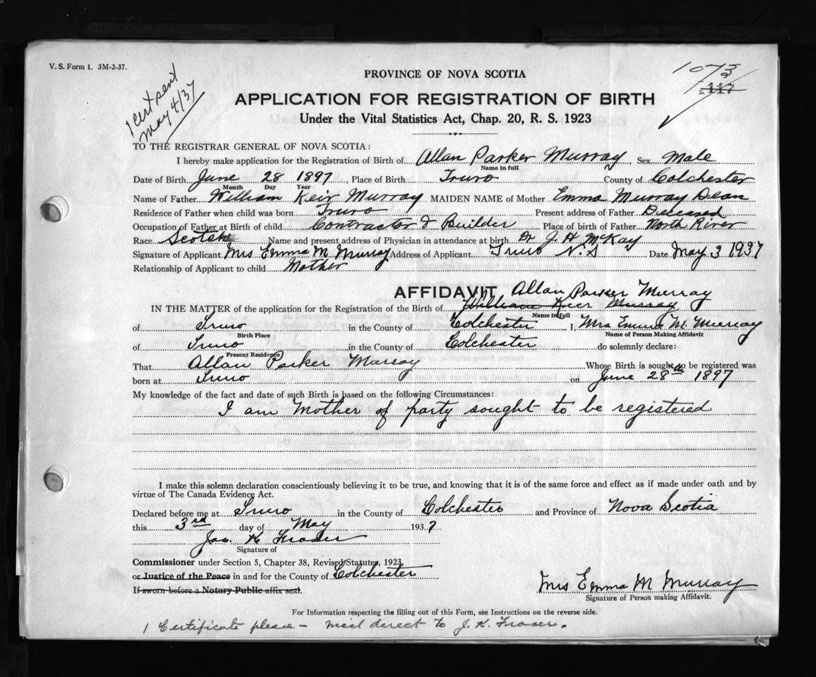 V. S. Form 1. 3M-2-37.
1 cert sent
May 4/37
1073
117
PROVINCE OF NOVA SCOTIA
APPLICATION FOR REGISTRATION OF BIRTH
Under the Vital Statistics Act, Chap. 20, R. S. 1923
TO THE REGISTRAR GENERAL OF NOVA SCOTIA:
I hereby make application for the Registration of Birth of Allan Parker Murray Sex Male
Name in full
Date of Birth June 28 1897 Place of Birth Truro County of Colchester
Month Day Year
Name of Father William Keir Murray MAIDEN NAME of Mother Emma Murray Dean
Residence of Father when child was born Truro Present address of Father Deceased
Occupation of Father at Birth of child Contractor & Builder Place of birth of Father North River
Race Scotch Name and present address of Physician in attendance at birth Dr J. H. McKay
Signature of Applicant Mrs Emma M Murray Address of Applicant Truro N.S Date May 3 1937
Relationship of Applicant to child Mother
AFFIDAVIT Allan Parker Murray
IN THE MATTER of the application for the Registration of the Birth of William Keer Murray
Name in full
of Truro in the County of Colchester I, Mrs Emma M. Murray
Birth Place Name of Person Making Affidavit
of Truro in the County of Colchester do solemnly declare:
Present Residence
That Allan Parker Murray Whose Birth is sought to be registered was
born at Truro on June 28th 1897
My knowledge of the fact and date of such Birth is based on the following Circumstances:
I am Mother of party sought to be registered
I make this solemn declaration conscientiously believing it to be true, and knowing that it is of the same force and effect as if made under oath and by
virtue of The Canada Evidence Act.
Declared before me at Truro in the County of Colchester and Province of Nova Scotia
this 3rd day of May 1937
Jas. K Fraser
Signature of
Commissioner under Section 5, Chapter 38, Revised Statutes, 1923
or Justice of the Peace in and for the County of Colchester
If sworn before a Notary Public affix seal.
Mrs Emma M Murray
Signature of Person making Affidavit.
For Information respecting the filling out of this Form, see Instructions on the reverse side.
1 Certificate please - mail direct to J. K. Fraser.